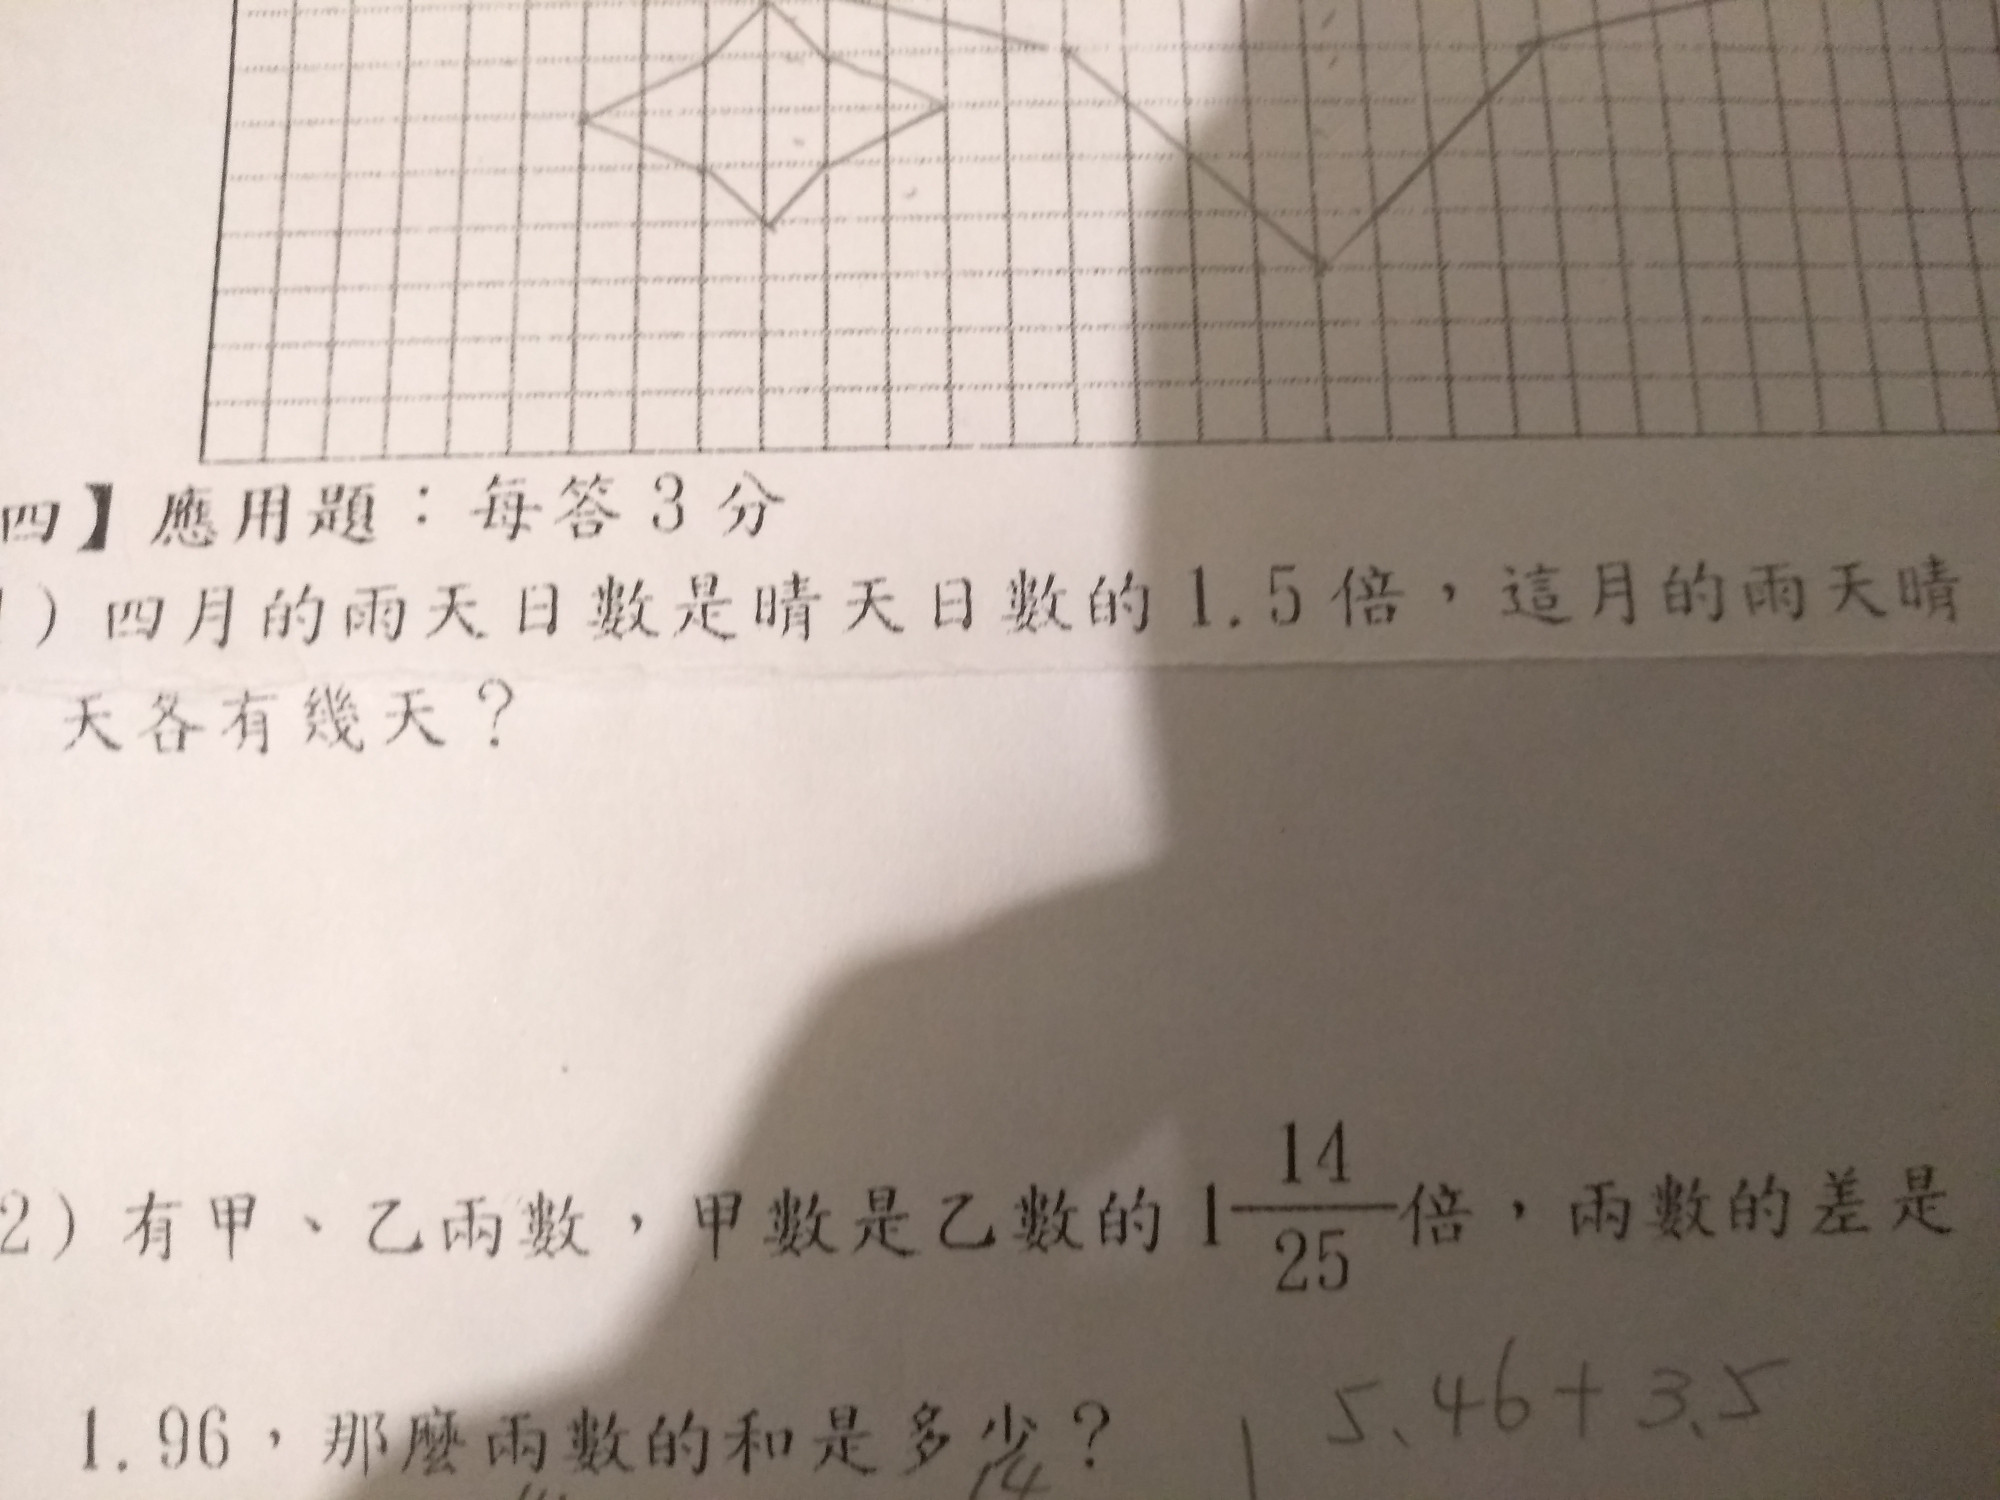 四】應用題：每答3分
1)四月的雨天日數是晴天日數的1.5倍，這月的雨天晴
天各有幾天？
2)有甲、乙兩數，甲數是乙數的1 14/25 倍，兩數的差是
1.96，那麼兩數的和是多少？
5.46+3.5
14